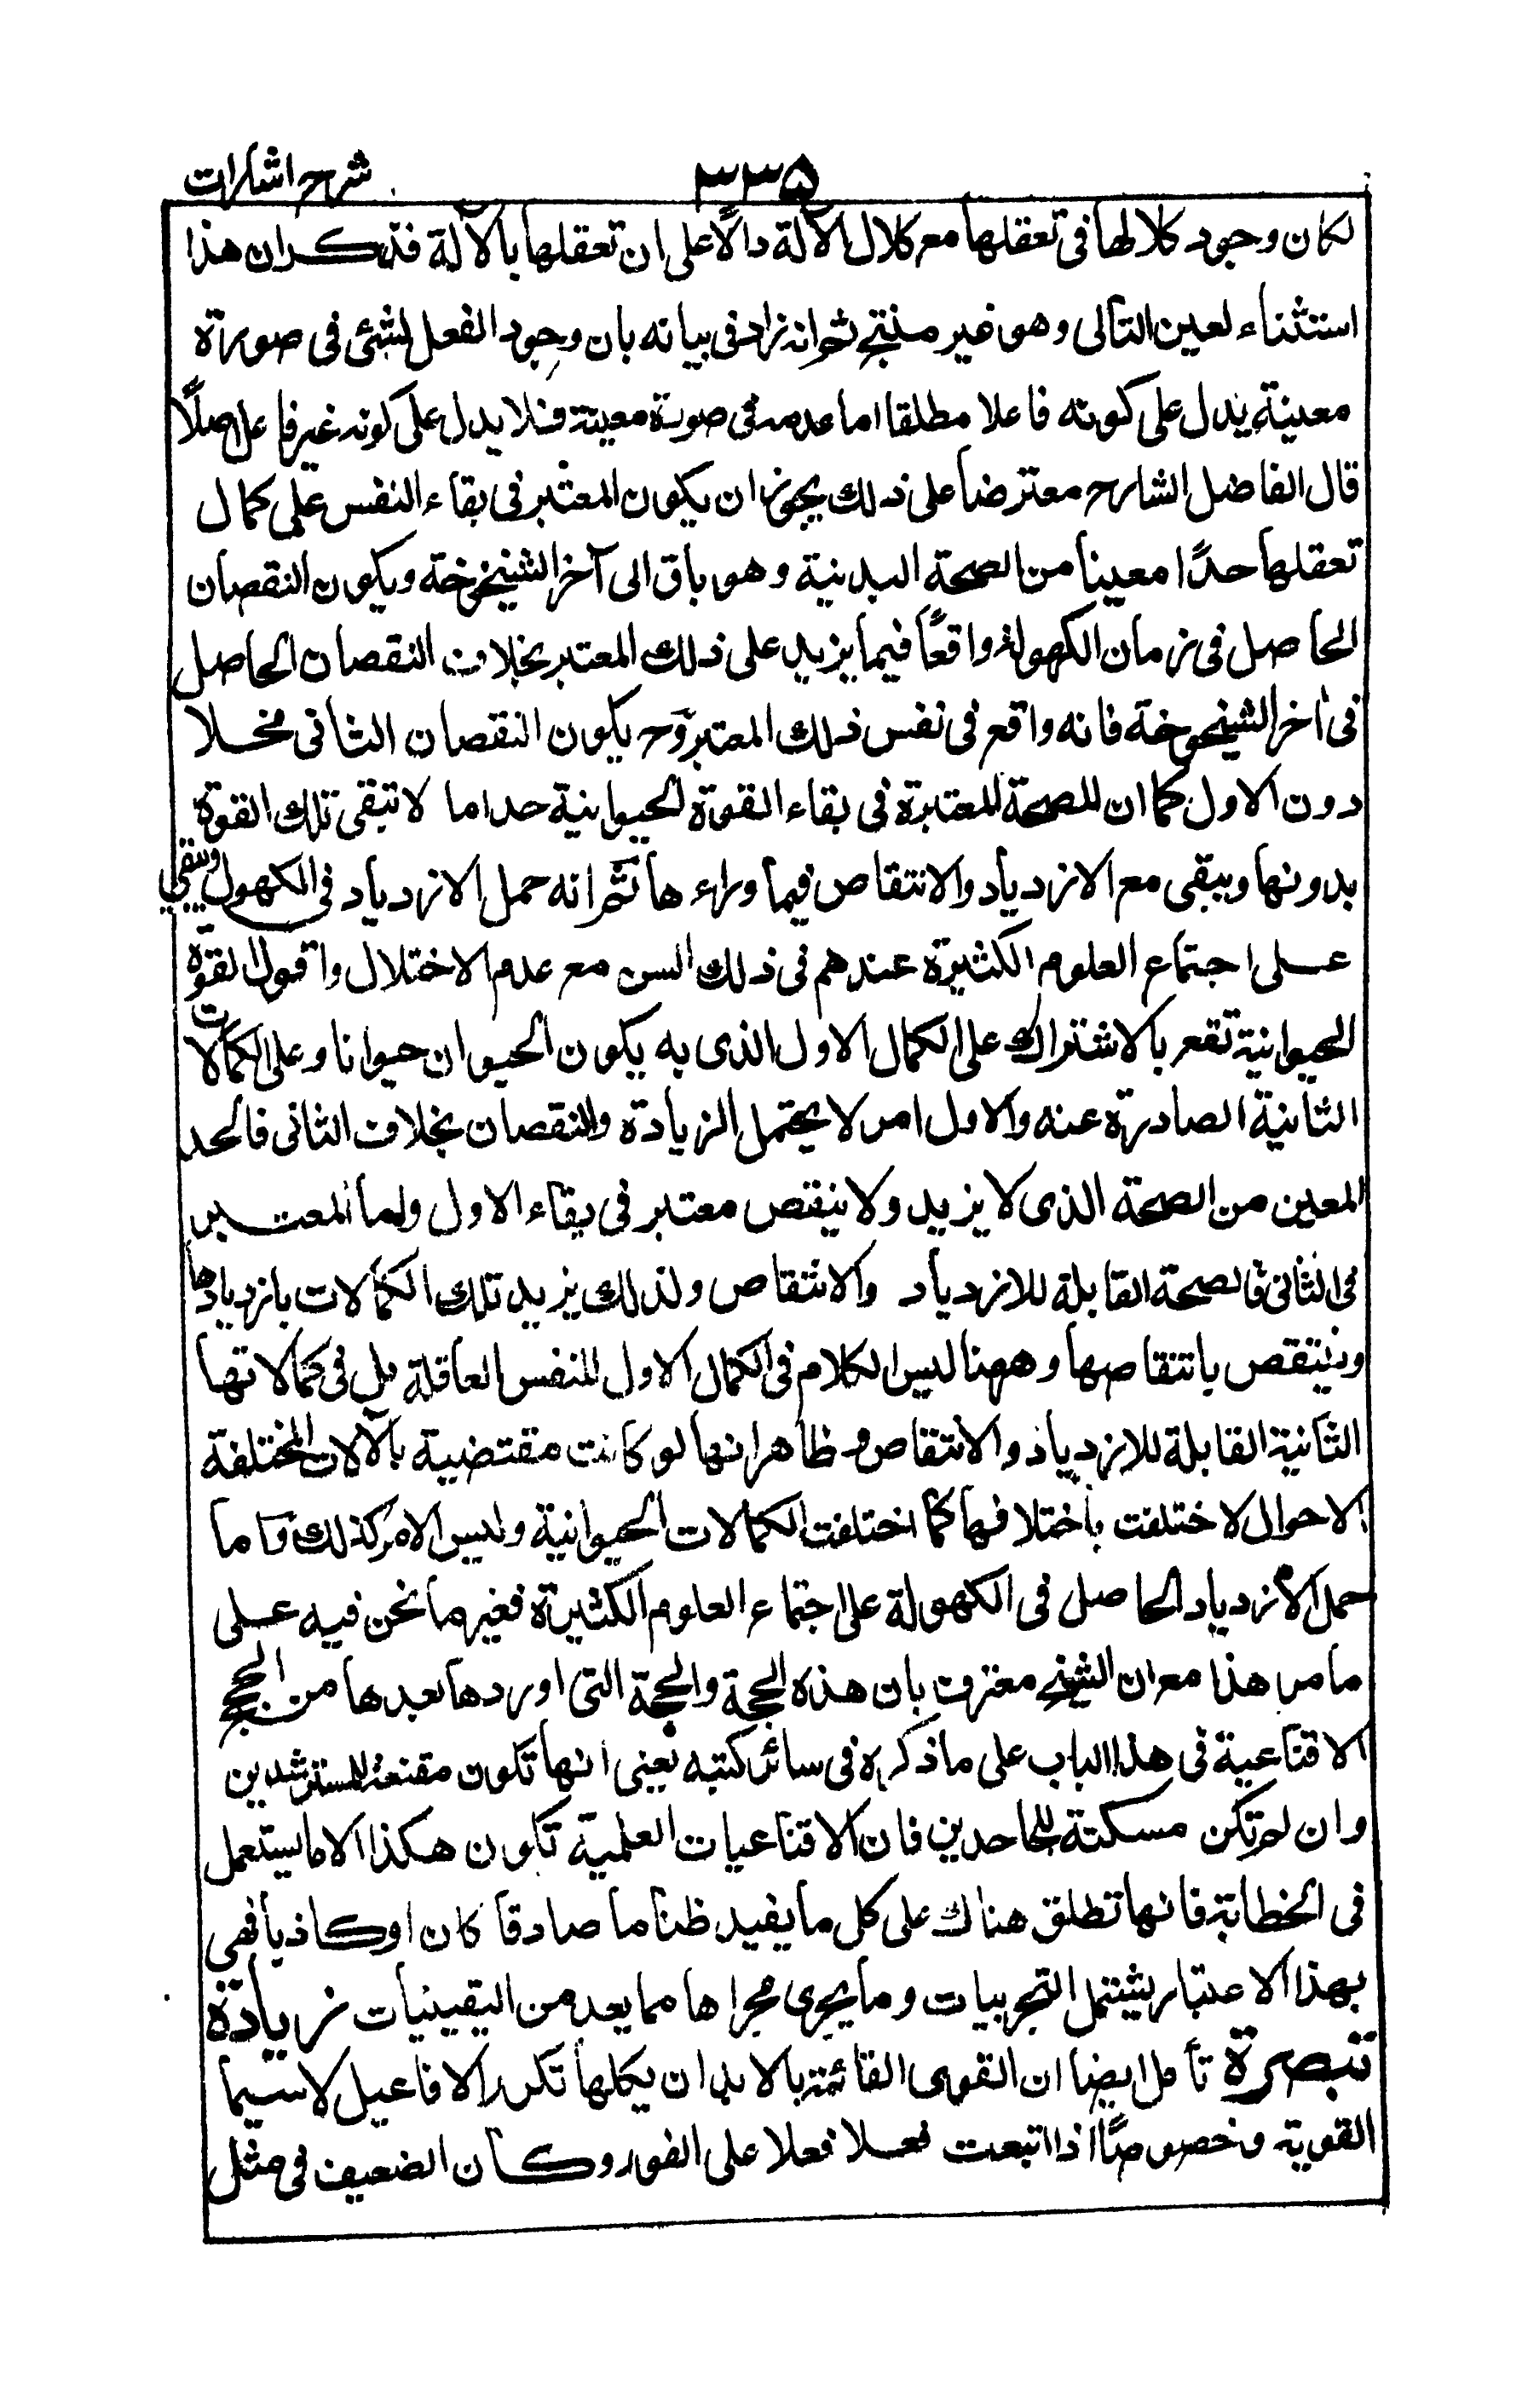 شرح اشارات
٣٣۵
لكان وجود كلالها فى تعقلها مع كلال الآلة دالًا على ان تعقلها بالآلة فذكر ان هذا
استثناء لعين التالى وهو غير منتج ثم انه زاد فى بيانه بان وجود الفعل لشئ فى صورة
معينة يدل على كونه فاعلا مطلقا اما عدمه فى صورة معينة فلا يدل على كونه غير فاعل اصلًا
قال الفاضل الشارح معترضا على ذلك يجوز ان يكون المعتبر فى بقاء النفس على كمال
تعقلها حدًا معينا من الصحة البدنية وهو باق الى آخر الشيخوخة ويكون النقصان
الحاصل فى زمان الكهولة واقعًا فيما يزيد على ذلك المعتبر بخلاف النقصان الحاصل
فى اخر الشيخوخة فانه واقع فى نفس ذلك المعتبر وح يكون النقصان الثانى مخلا
دون الاول كما ان للصحة المعتبرة فى بقاء القوة الحيوانية حدا ما لا تبقى تلك القوة
بدونها ويبقى مع الازدياد والانتقاص فيما وراءها ثم انه حمل الازدياد فى الكهول
على اجتماع العلوم الكثيرة عندهم فى ذلك السن مع عدم الاختلال واقول القوة
الحيوانية تقع بالاشتراك على الكمال الاول الذى به يكون الحيوان حيوانا وعلى الكمالات
الثانية الصادرة عنه والاول امر لا يحتمل الزيادة والنقصان بخلاف الثانى فالحد
المعين من الصحة الذى لا يزيد ولا ينقص معتبر فى بقاء الاول واما المعتبر
فى الثانى فالصحة القابلة للازدياد والانتقاص ولذلك يزيد تلك الكمالات بازديادها
وينتقص بانتقاصها وههنا ليس الكلام فى الكمال الاول للنفس العاقلة بل فى كمالاتها
الثانية القابلة للازدياد والانتقاص وظاهر انها لو كانت مقتضية بالآلات المختلفة
الاحوال لاختلفت باختلافها كما اختلفت الكمالات الحيوانية وليس الامر كذلك واما
حمل الازدياد الحاصل فى الكهولة على اجتماع العلوم الكثيرة فغير ما نحن فيه على
ما مر هذا مع ان الشيخ معترف بان هذه الحجة والحجة التى اوردها بعدها من الحجج
الاقناعية فى هذا الباب على ما ذكره فى سائر كتبه يعنى انها تكون مقنعة للمسترشدين
وان لم تكن مسكتة للجاحدين فان الاقناعيات العلمية تكون هكذا الا ما يستعمل
فى الخطابة فانها تطلق هناك على كل ما يفيد ظنا ما صادقا كان او كاذبا فهى
بهذا الاعتبار يشتمل التجربيات وما يجرى مجراها مما يعد من اليقينيات زيادة
تبصرة تأمل ايضا ان القوى القائمة بالابدان يكلها تكرر الافاعيل لا سيما
القوية وخصوصًا اذا اتبعت فعلا فعلا على الفور وكان الضعيف فى مثل